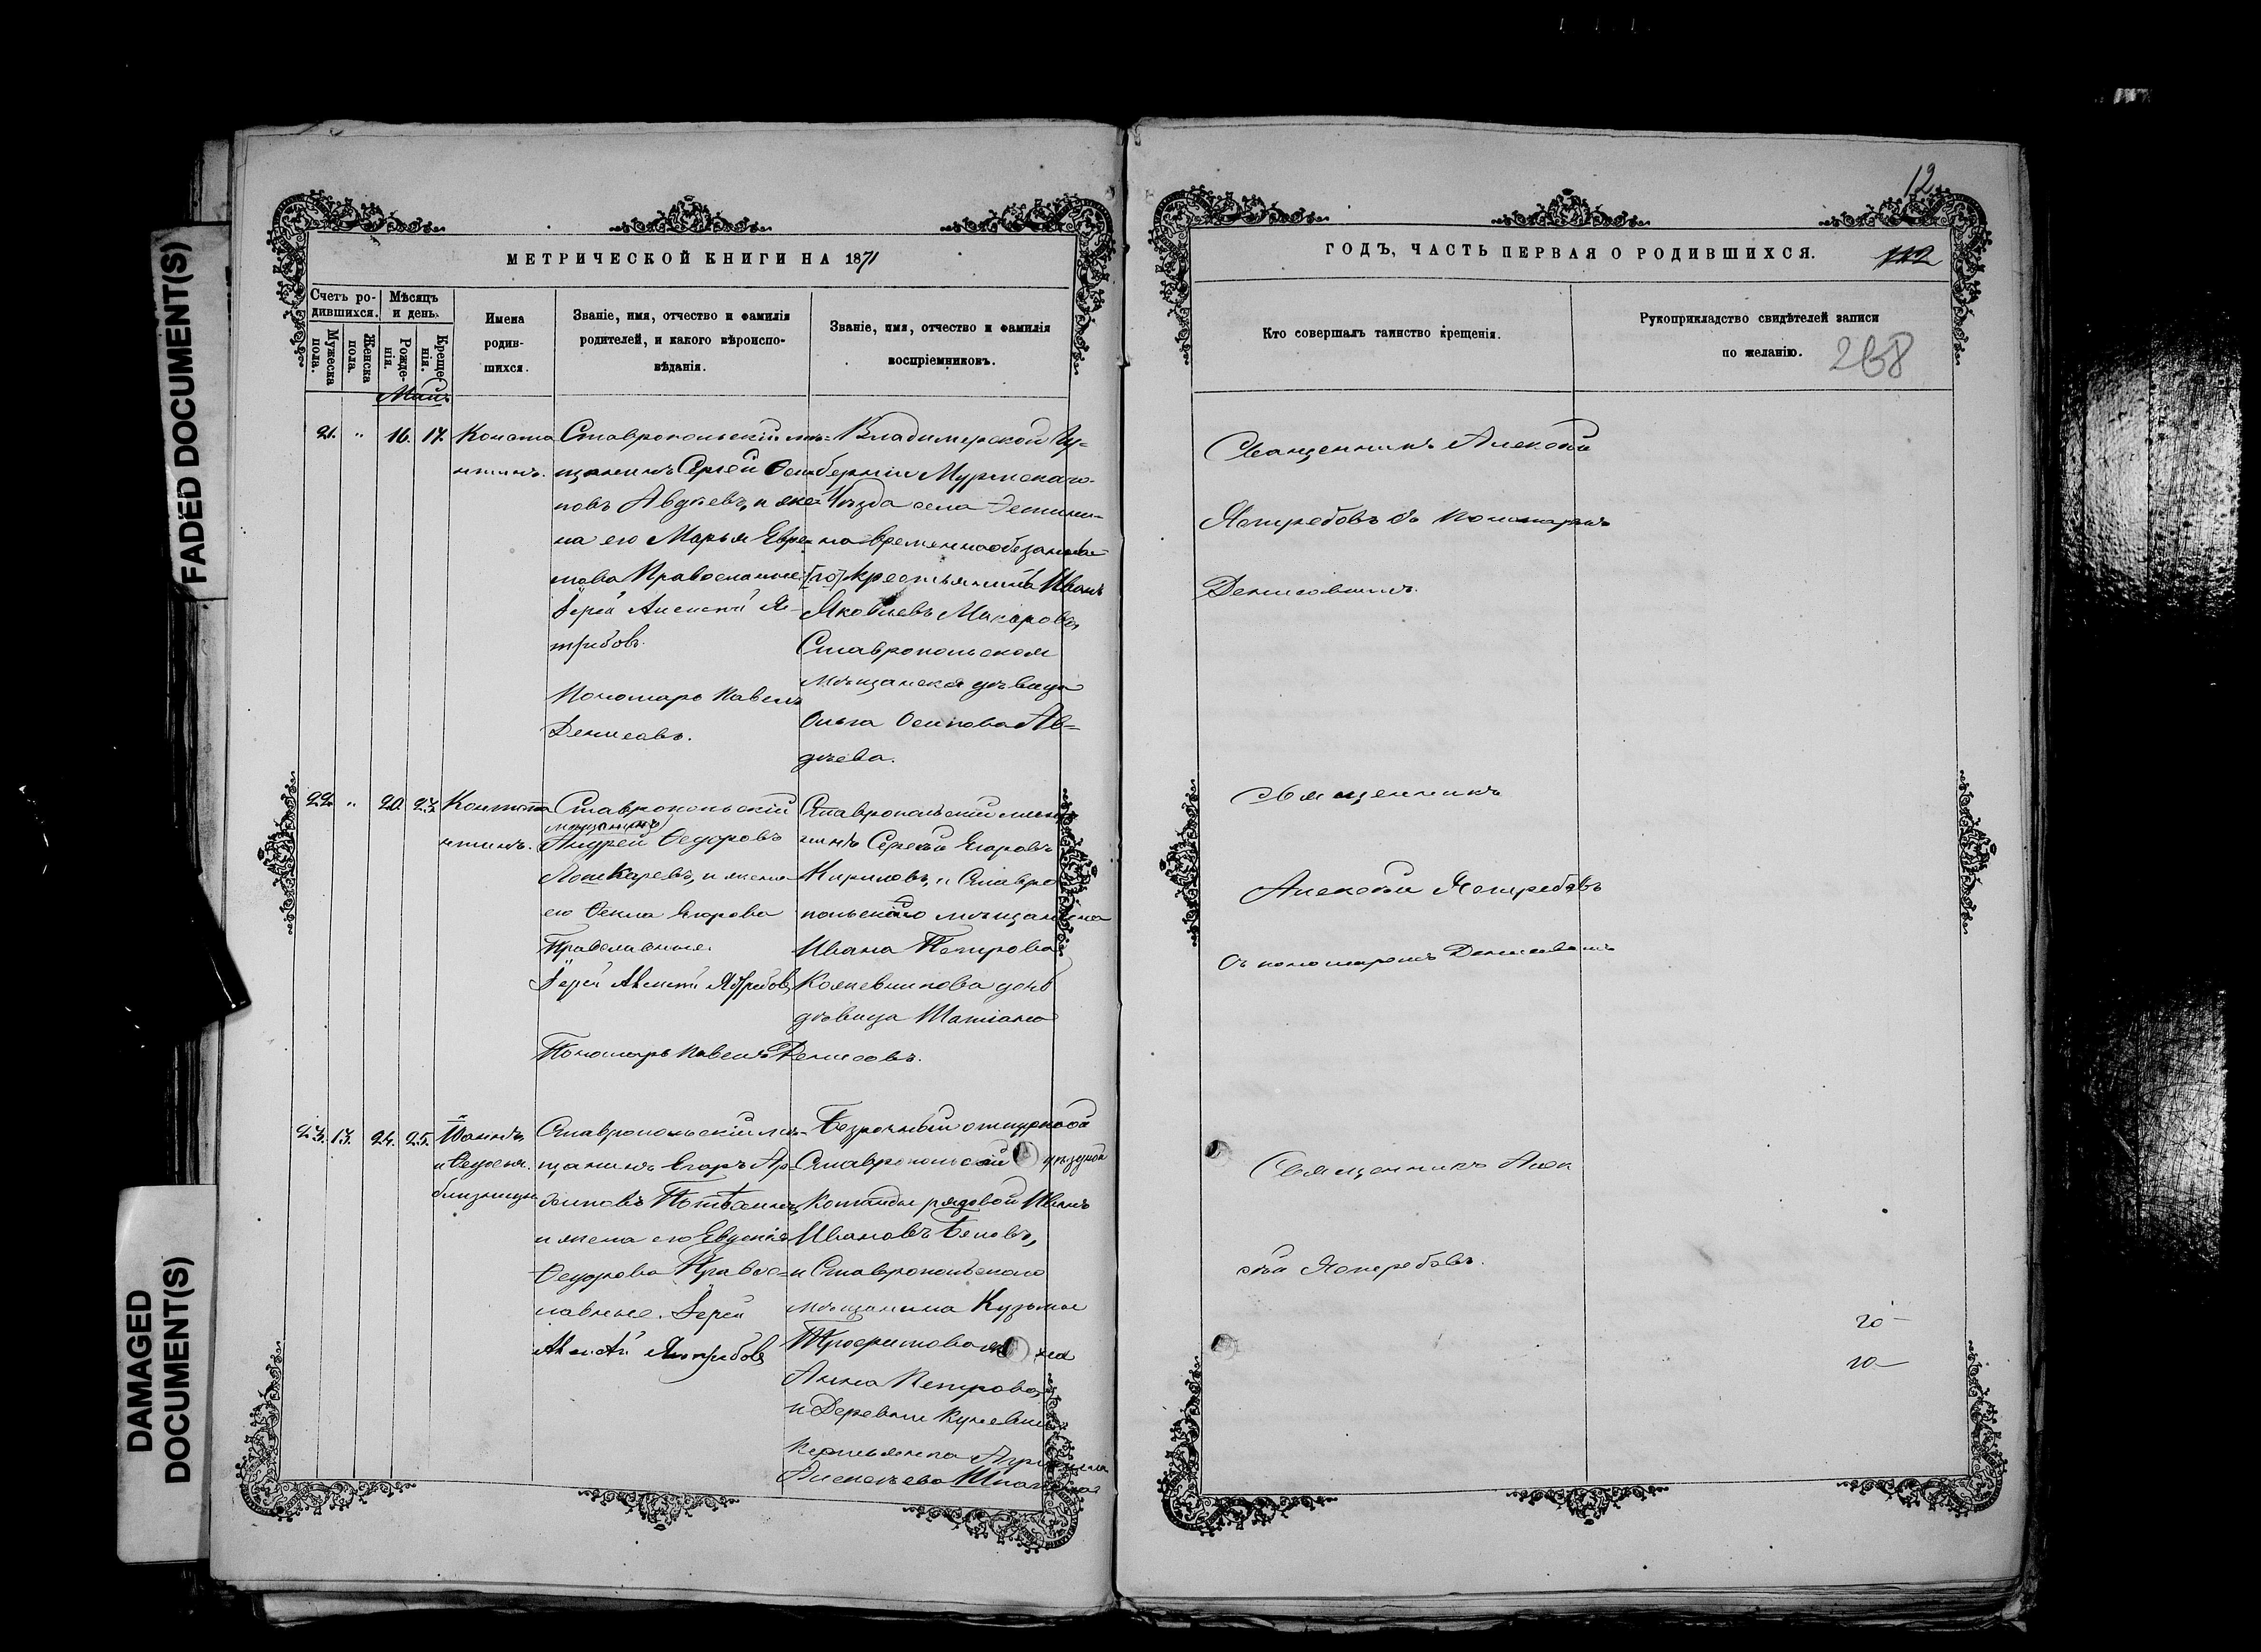 FADED DOCUMENT(S)
DAMAGED
DOCUMENT(S)
МЕТРИЧЕСКОЙ КНИГИ НА 1871
Счетъ ро-
дившихся.
Мужеска
пола.
Женска
пола.
Мѣсяцъ
и день.
Рожде-
нія.
Креще-
нія.
Имена
родив-
шихся.
Званіе, имя, отчество и фамилія
родителей, и какого вѣроиспо-
вѣданія.
Званіе, имя, отчество и фамилія
воспріемниковъ.
Май
21. " 16. 17.
Конста
нтинъ.
Ставропольскій мѣ=
щанинъ Сергей Оси
повъ Авдѣевъ, и же=
на его Марья
Православные
Іерей Алексѣй Яс-
требовъ.
Пономарь Павелъ
Денисовъ.
Владимерской Гу=
берніи Муромскаго
Уѣзда села
временнообязанна
[го] крестьянина Иванъ
Яковлевъ Макаровъ,
Ставропольская
мѣщанская дѣвица
Ольга Осипова Ав=
дѣева.
22. " 20. 23.
Конста
нтинъ.
Ставропольскій
мѣщанинъ
Андрей Ѳедоровъ
Лошкаревъ, и жена
его Ѳекла Егорова
Православные.
Іерей Алексѣй Ястребовъ
Пономарь Павелъ Денисовъ.
Ставропольскій мѣща
нинъ Сергѣй Егоровъ
Кириловъ, и Ставро
польскаго мѣщанина
Ивана Петрова
Кожевникова дочь
дѣвица Татіана
23. 13. 24. 25.
Іоаннъ
и Ѳедосья
близнецы
Ставропольскій мѣ=
щанинъ Егоръ Ар=
хиповъ
и жена его Евдокія
Ѳедорова Правос=
лавные. Іерей
Алексѣй Ястребовъ
Безрочный отпускной
Ставропольской уѣздной
команды рядовой Иванъ
Ивановъ Беловъ,
и Ставропольскаго
мѣщанина Кузьмы
Трофимова
Анна Петрова,
и Деревни
крестьянка
Алексѣева
12
ГОДЪ, ЧАСТЬ ПЕРВАЯ О РОДИВШИХСЯ.
112
Кто совершалъ таинство крещенія.
Рукоприкладство свидѣтелей записи
по желанію.
268
Священникъ Алексѣй
Ястребовъ съ пономаремъ
Денисовымъ.
Священникъ
Алексѣй Ястребовъ
съ пономаремъ Денисовымъ
Священникъ Алек
сѣй Ястребовъ.